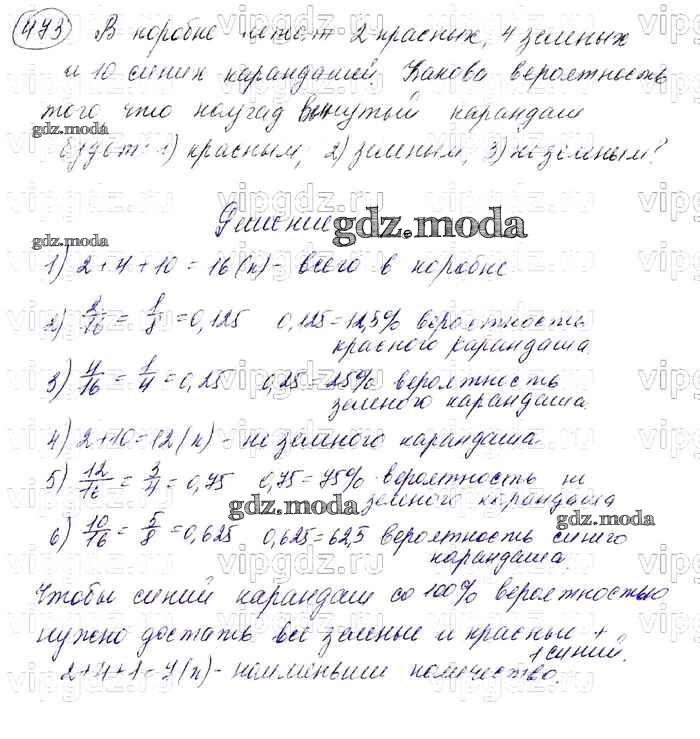 473) В коробке лежат 2 красных, 4 зеленых
и 10 синих карандашей. Какова вероятность
того что наугад вынутый карандаш
gdz.moda
будет: 1) красным; 2) зеленым, 3) не зеленым?
Решение
gdz.moda
gdz.moda
1) 2+4+10=16(к)- всего в коробке
2) 2/16 = 1/8 = 0,125 0,125=12,5% вероятность
красного карандаша.
3) 4/16 = 1/4 = 0,25 0,25=25% вероятность
зеленого карандаша.
4) 2+10=12(к)- не зеленого карандаша.
5) 12/16 = 3/4 = 0,75 0,75=75% вероятность не
зеленого карандаша
gdz.moda
gdz.moda
6) 10/16 = 5/8 = 0,625 0,625=62,5 вероятность синего
карандаша.
Чтобы синий карандаш со 100% вероятностью
нужно достать все зеленые и красные +
1 синий.
2+4+1=7(к)- наименьшее количество.